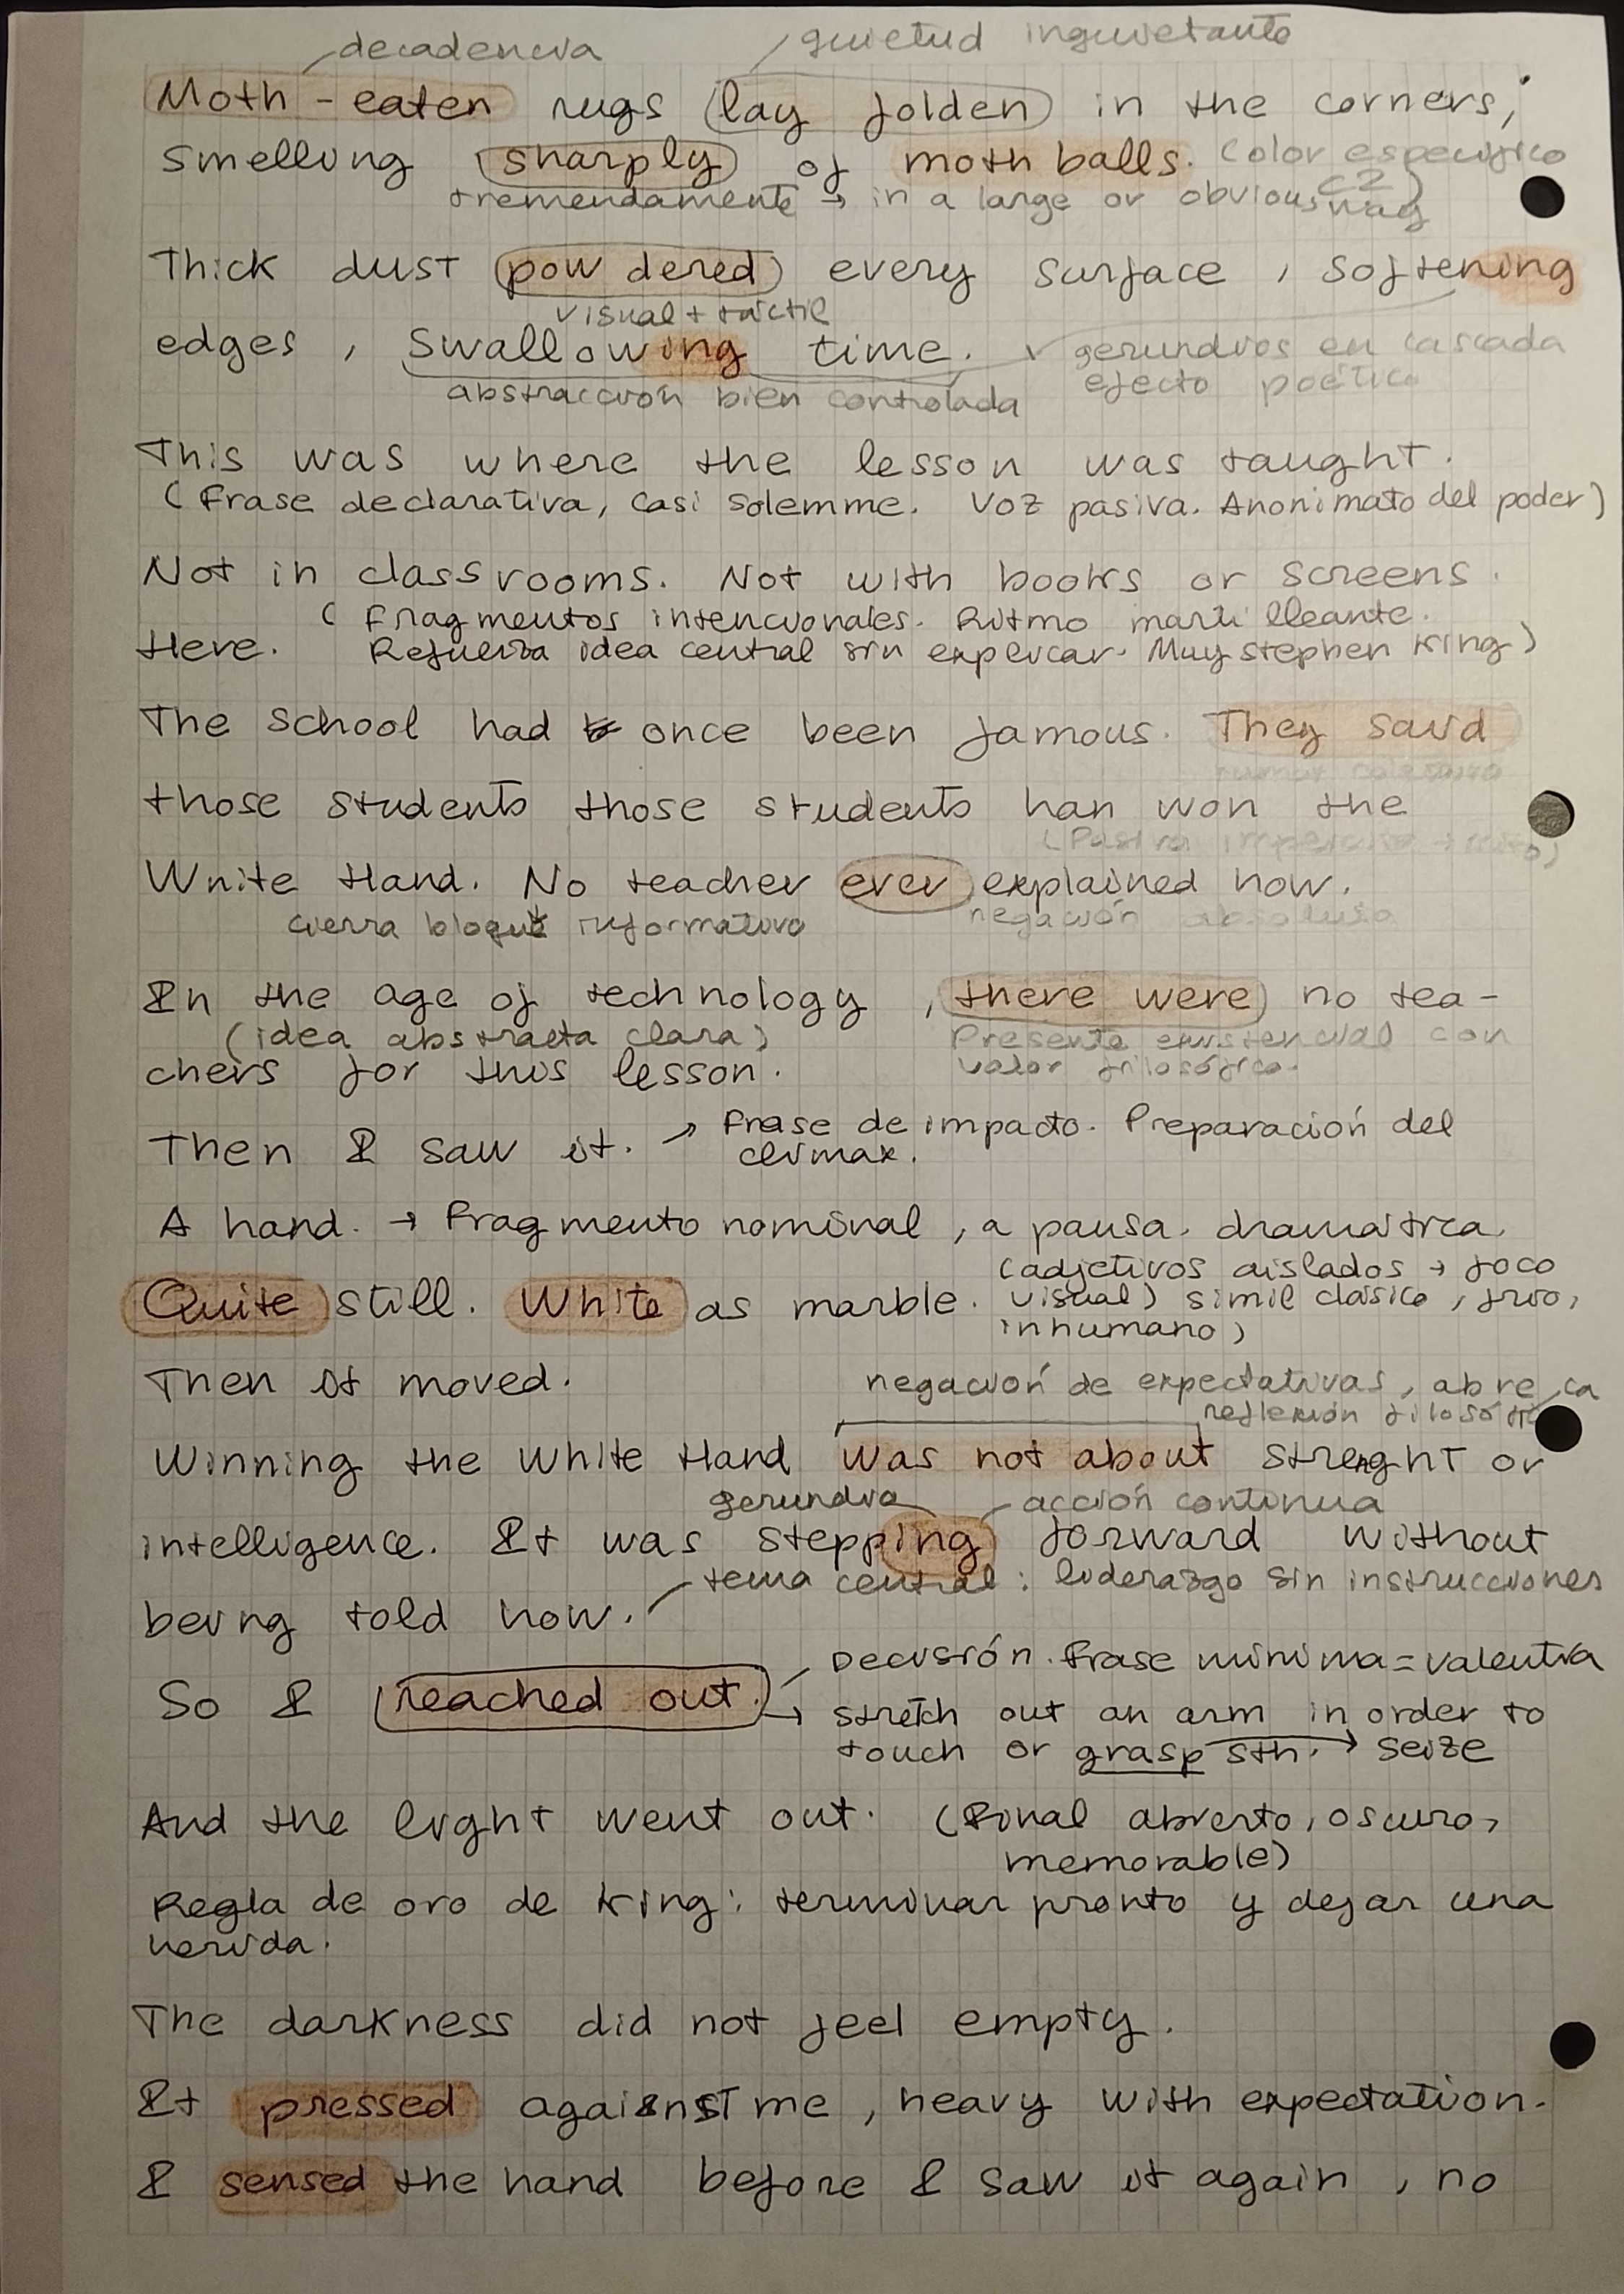 decadencia quietud inquietante
Moth-eaten rugs lay folden in the corners,
smelling sharply of moth balls. (olor específico
C2)
tremendamente → in a large or obvious way
Thick dust powdered every surface, softening
visual + táctil
edges, swallowing time. gerundios en cascada
abstracción bien controlada efecto poético
This was where the lesson was taught.
(Frase declarativa, casi solemme. Voz pasiva. Anonimato del poder)
Not in classrooms. Not with books or screens.
(Fragmentos intencionales. Ritmo martilleante.
Here. Refuerza idea central sin explicar. Muy Stephen King)
The school had once been famous. They said
rumor colectivo
those students those students han won the
(Pasiva impersonal + mito)
White Hand. No teacher ever explained how.
cierra bloque informativo negación absoluta
In the age of technology, there were no tea-
(idea abstracta clara) Presente existencial con
chers for this lesson. valor filosófico.
Then I saw it. → Frase de impacto. Preparación del
climax.
A hand. → Fragmento nominal, a pausa. dramática.
(adjetivos aislados → foco
Quite still. White as marble. visual) simil clásico, frío,
inhumano)
Then it moved. negación de expectativas, abre
reflexión filosófica
Winning the White Hand was not about strenght or
gerundio acción continua
intelligence. It was stepping forward without
tema central: liderazgo sin instrucciones
being told how.
Decisión. Frase mínima = valentía
So I reached out. → stretch out an arm in order to
touch or grasp sth. → seize
And the light went out. (Final abierto, oscuro,
memorable)
Regla de oro de King: terminar pronto y dejar una
herida.
The darkness did not feel empty.
It pressed against me, heavy with expectation.
I sensed the hand before I saw it again, no